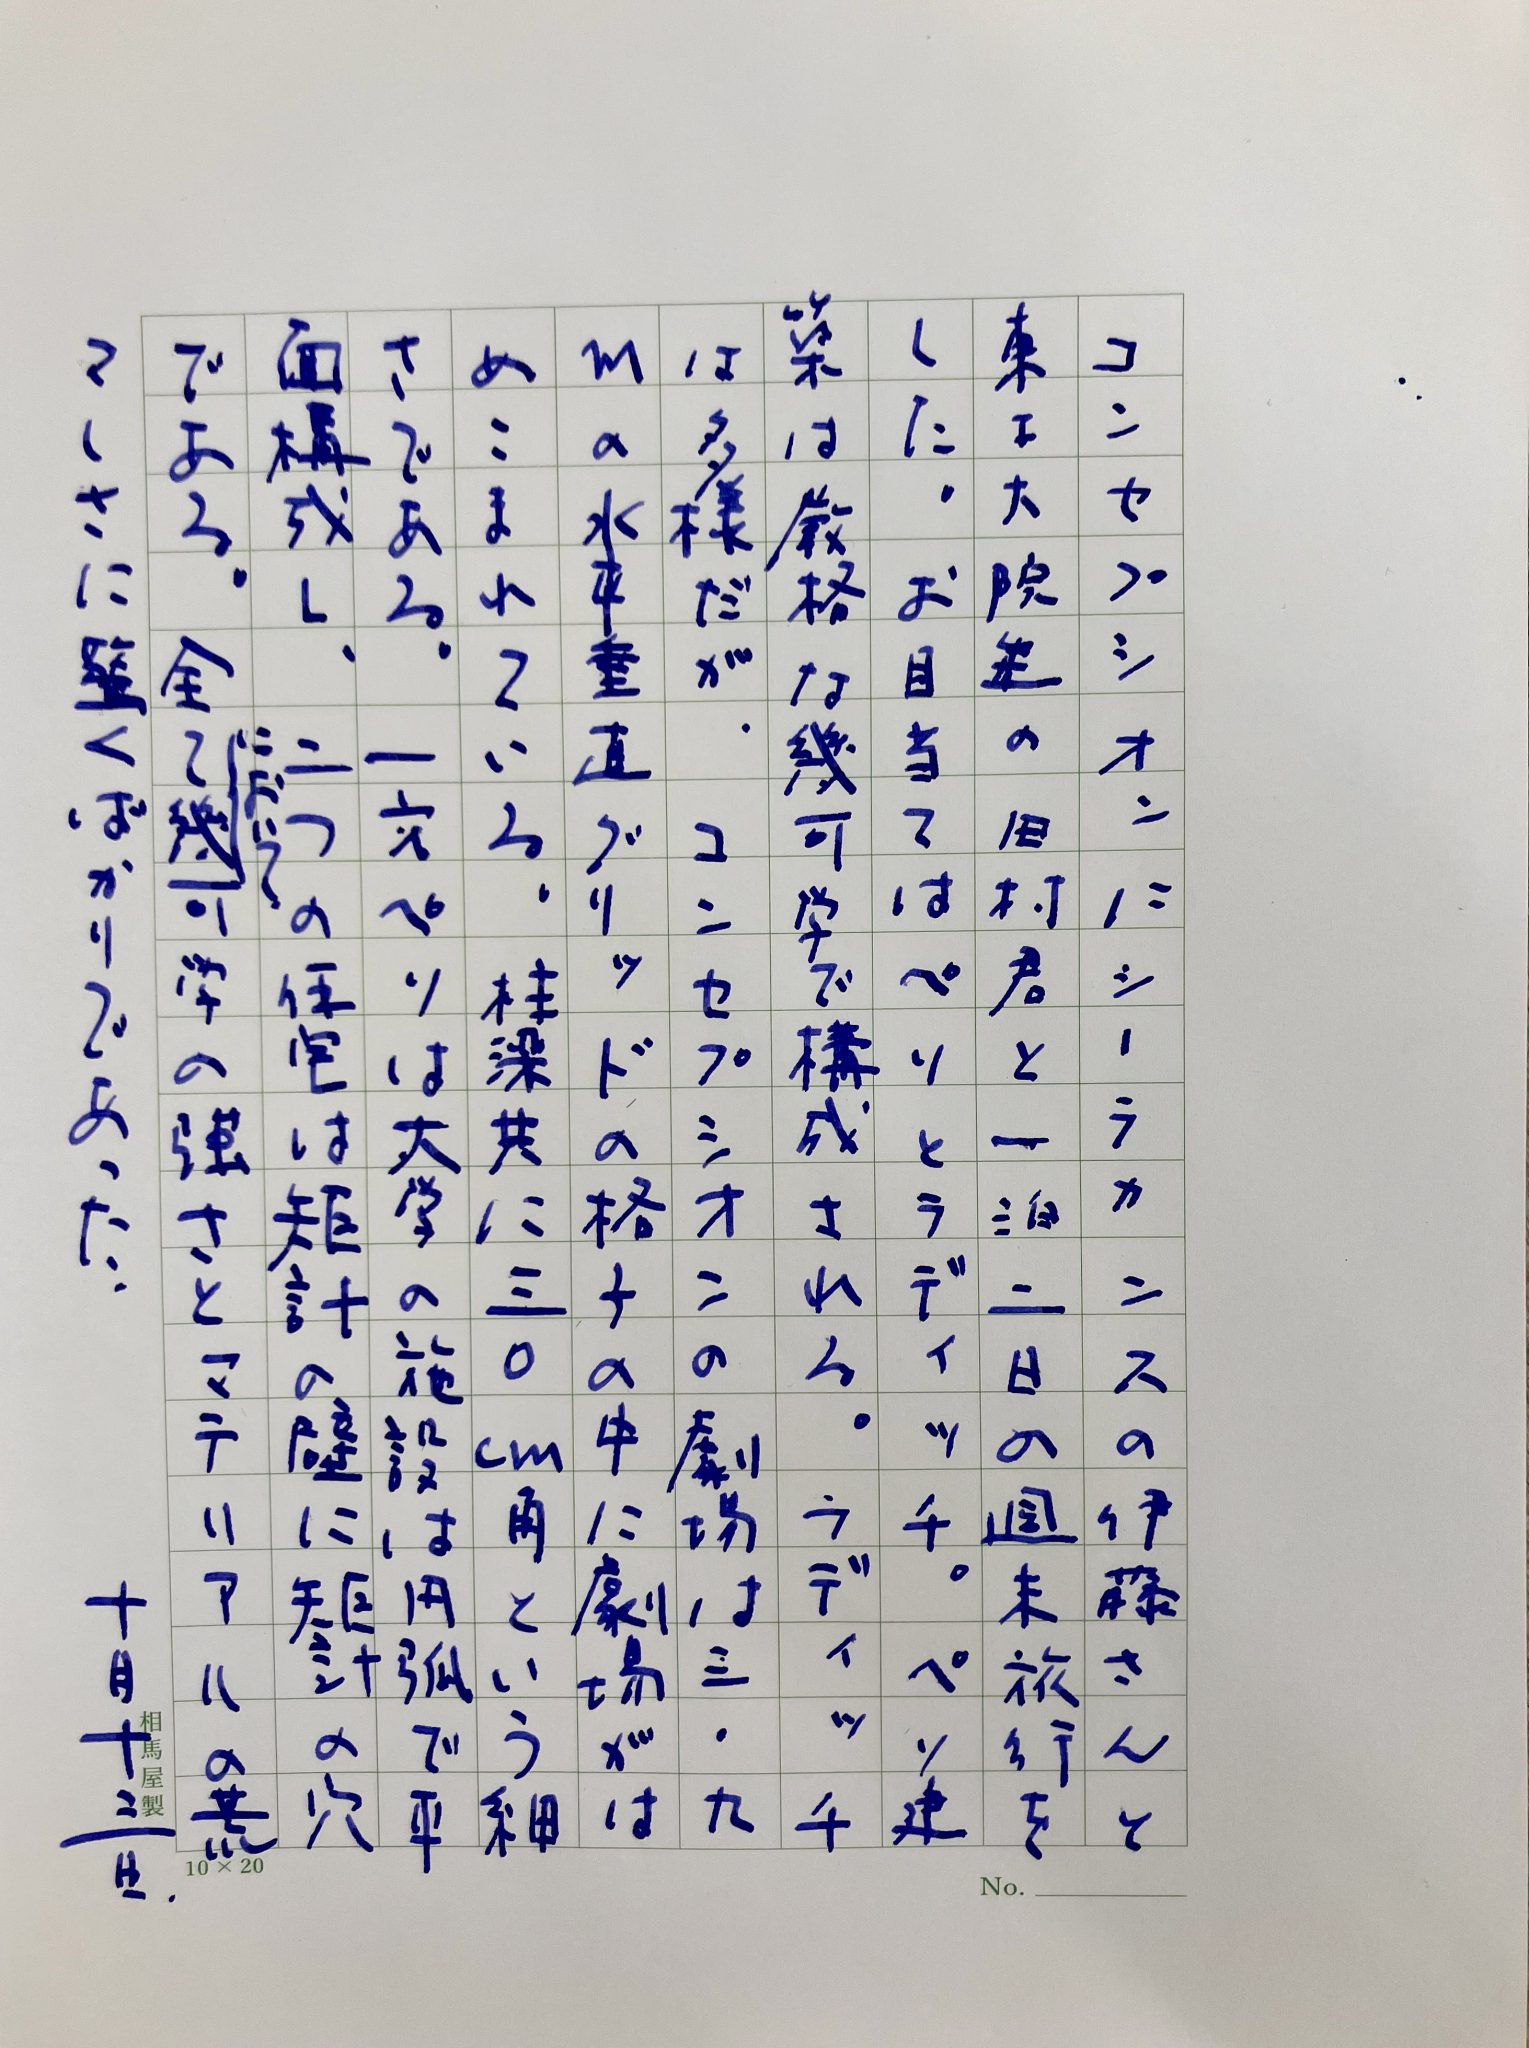 コンセプシオンにシーラカンスの伊藤さんと
東工大院生の田村君と一泊二日の週末旅行を
した。お目当てはペソとラディッチ。ペソ建
築は厳格な幾可学で構成される。ラディッチ
は多様だが、コンセプシオンの劇場は三・九
mの水平垂直グリッドの格子の中に劇場がは
めこまれている。柱梁共に三〇cm角という細
さである。一方ペソは大学の施設は円弧で平
面構成し、二つの住宅は矩計の壁に矩計の穴
である。全て幾可学の強さとマテリアルの
において
マしさに驚くばかりであった。
十月十三日.
相馬屋製
10×20
No.